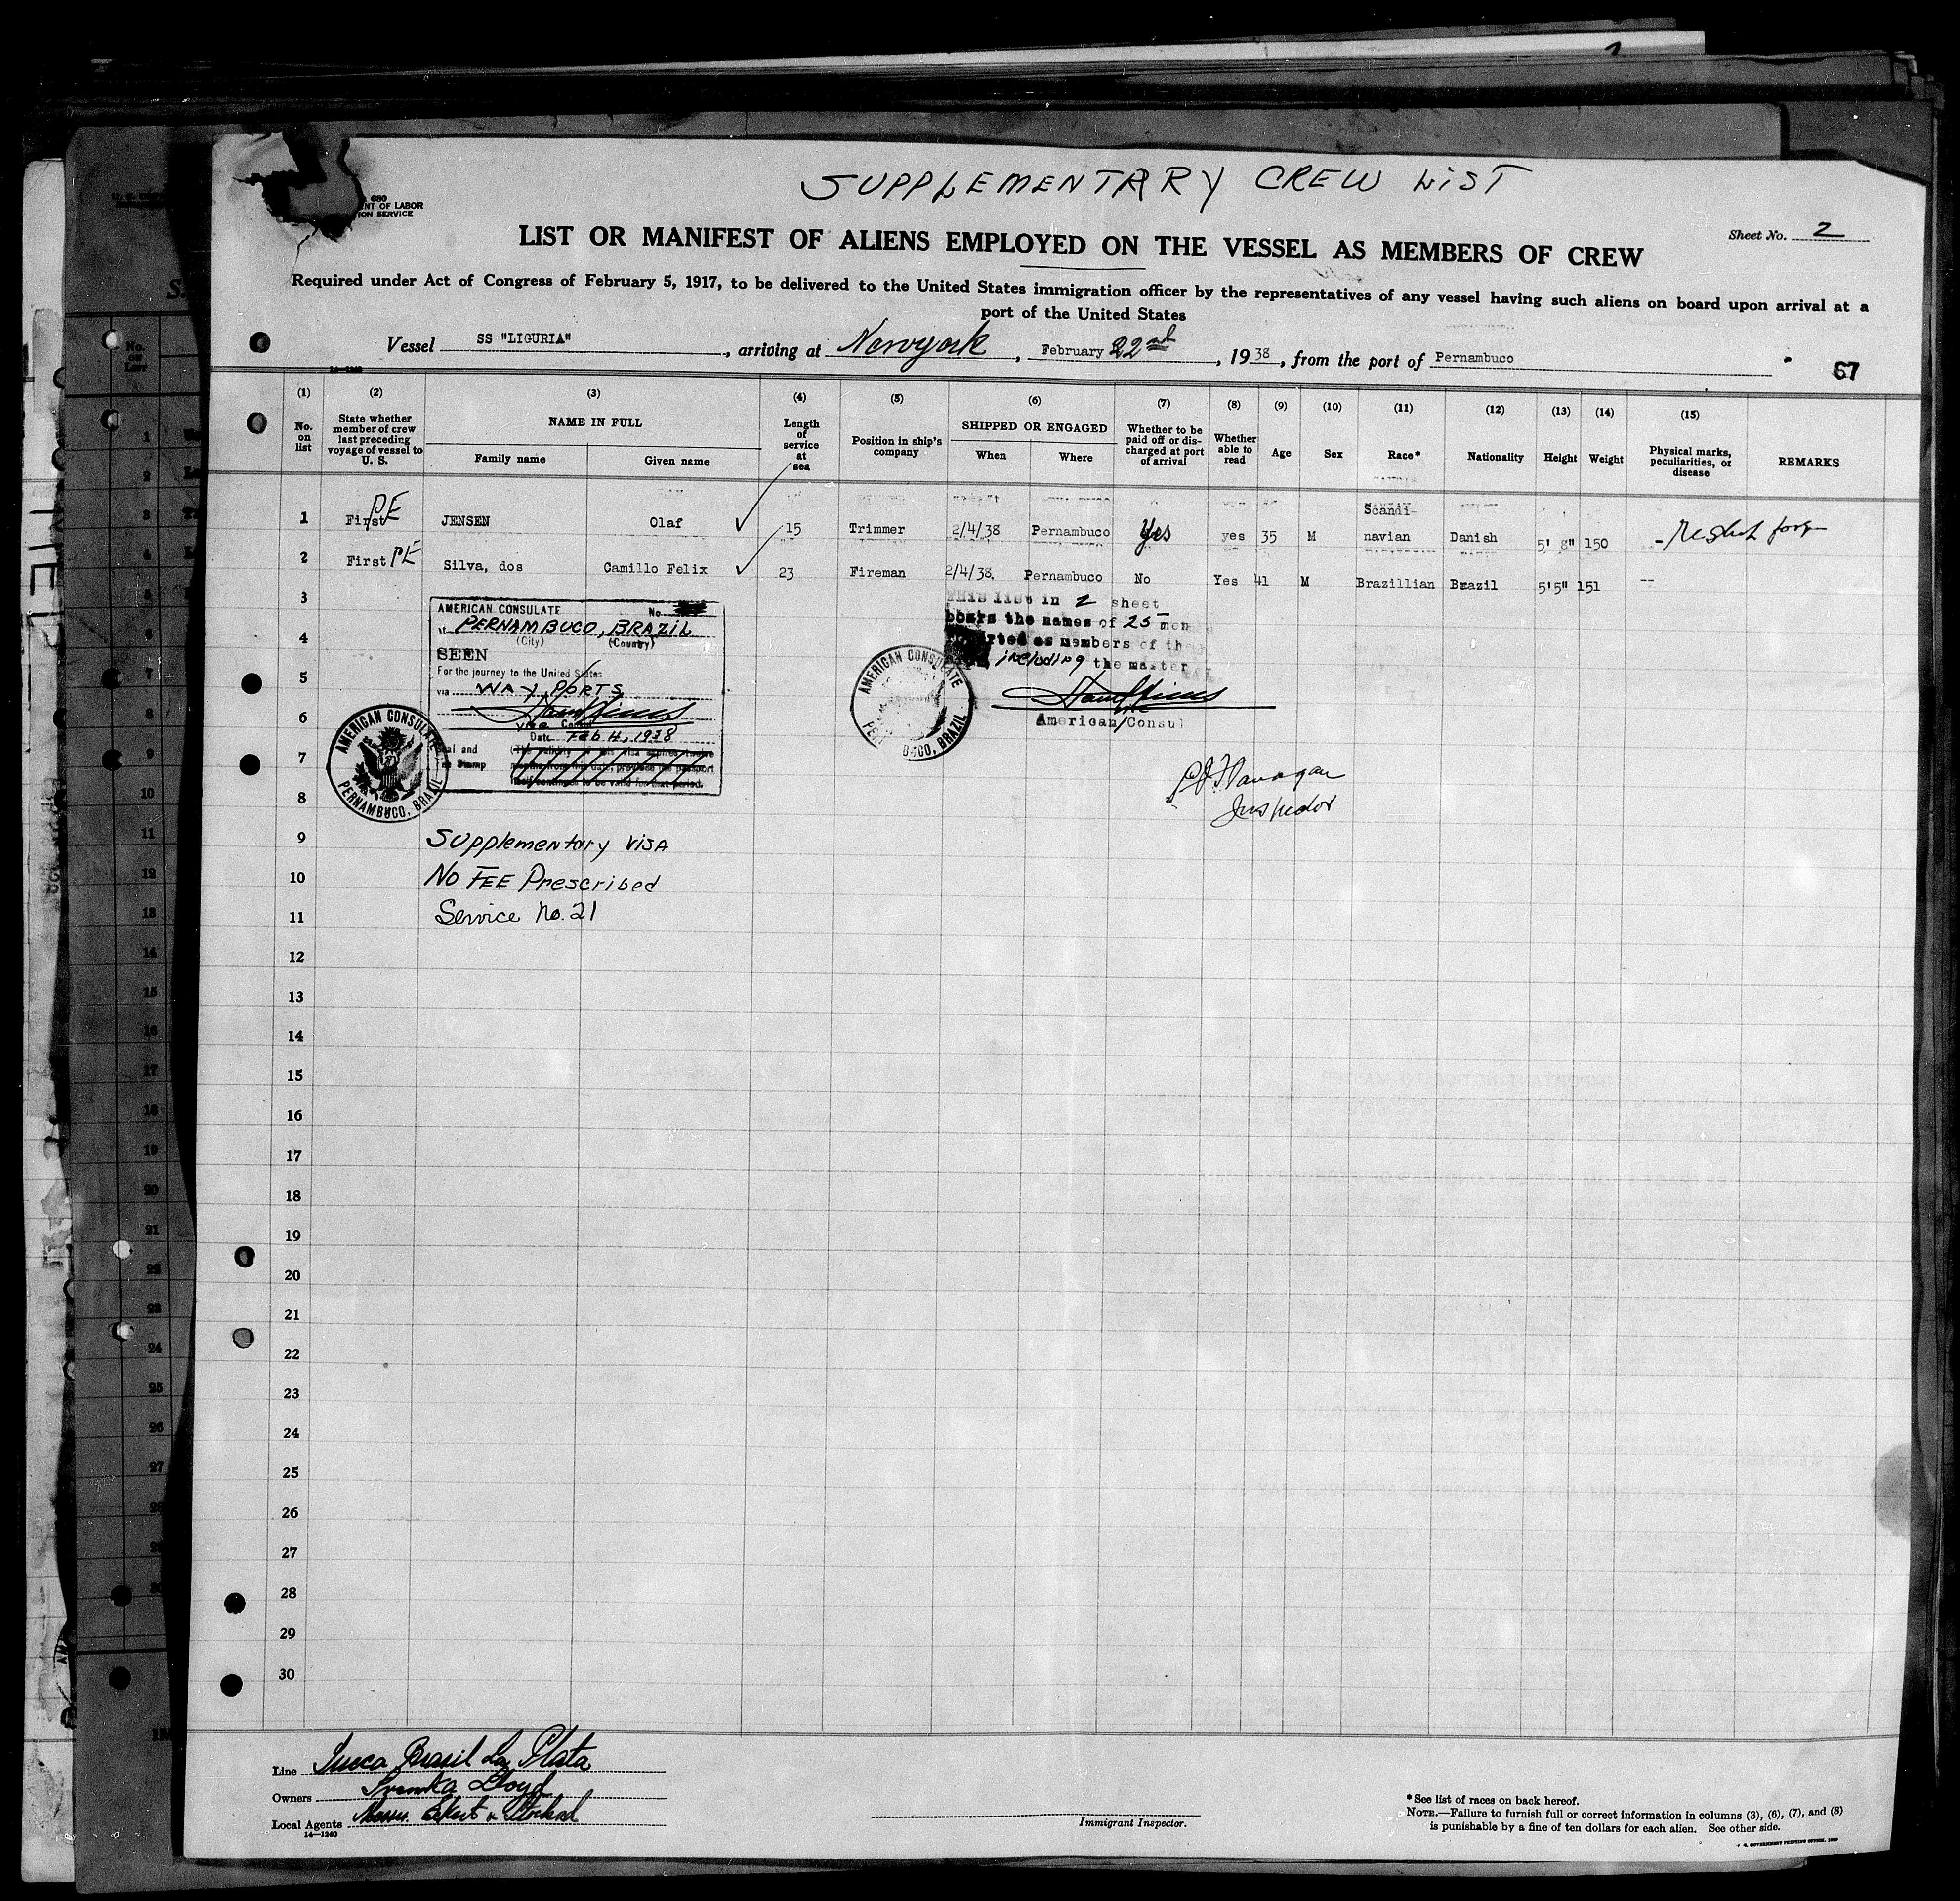 SUPPLEMENTARY CREW LIST
680
NT OF LABOR
ION SERVICE
Sheet No. 2
LIST OR MANIFEST OF ALIENS EMPLOYED ON THE VESSEL AS MEMBERS OF CREW
Required under Act of Congress of February 5, 1917, to be delivered to the United States immigration officer by the representatives of any vessel having such aliens on board upon arrival at a
port of the United States
Vessel SS "LIGURIA", arriving at Newyork, February 22nd, 1938, from the port of Pernambuco
67
14—1240
(1) (2) (3) (4) (5) (6) (7) (8) (9) (10) (11) (12) (13) (14) (15)
No. on list
State whether member of crew last preceding voyage of vessel to U. S.
NAME IN FULL
Family name
Given name
Length of service at sea
Position in ship's company
SHIPPED OR ENGAGED
When
Where
Whether to be paid off or discharged at port of arrival
Whether able to read
Age
Sex
Race*
Nationality
Height
Weight
Physical marks, peculiarities, or disease
REMARKS
1 First PE JENSEN Olaf 15 Trimmer 2/4/38 Pernambuco Yes yes 35 M Scandi-
navian Danish 5' 8" 150
2 First PE Silva, dos Camillo Felix 23 Fireman 2/4/38. Pernambuco No Yes 41 M Brazillian Brazil 5'5" 151 --
3
4
5
6
7
8
9
10
11
12
13
14
15
16
17
18
19
20
21
22
23
24
25
26
27
28
29
30
AMERICAN CONSULATE No.
at PERNAMBUCO, BRAZIL
(City) (Country)
SEEN
For the journey to the United States
via WAY PORTS
Vice Consul
Date Feb 4, 1938
Seal and
Fee Stamp
(The validity of this visa expires twelve
months from this date, provided the passport
itself continues to be valid for that period.
AMERICAN CONSULATE
PERNAMBUCO, BRAZIL
This list in 2 sheet
bears the names of 25 men
as members of the
including the master
American Consul
AMERICAN CONSULATE
PERNAMBUCO, BRAZIL
Inspector
Supplementary Visa
No FEE Prescribed
Service No. 21
Line Sueca Brasil La Plata
Owners Svenska Lloyd
Local Agents
14—1240
Immigrant Inspector.
*See list of races on back hereof.
NOTE.—Failure to furnish full or correct information in columns (3), (6), (7), and (8)
is punishable by a fine of ten dollars for each alien. See other side.
GOVERNMENT PRINTING OFFICE